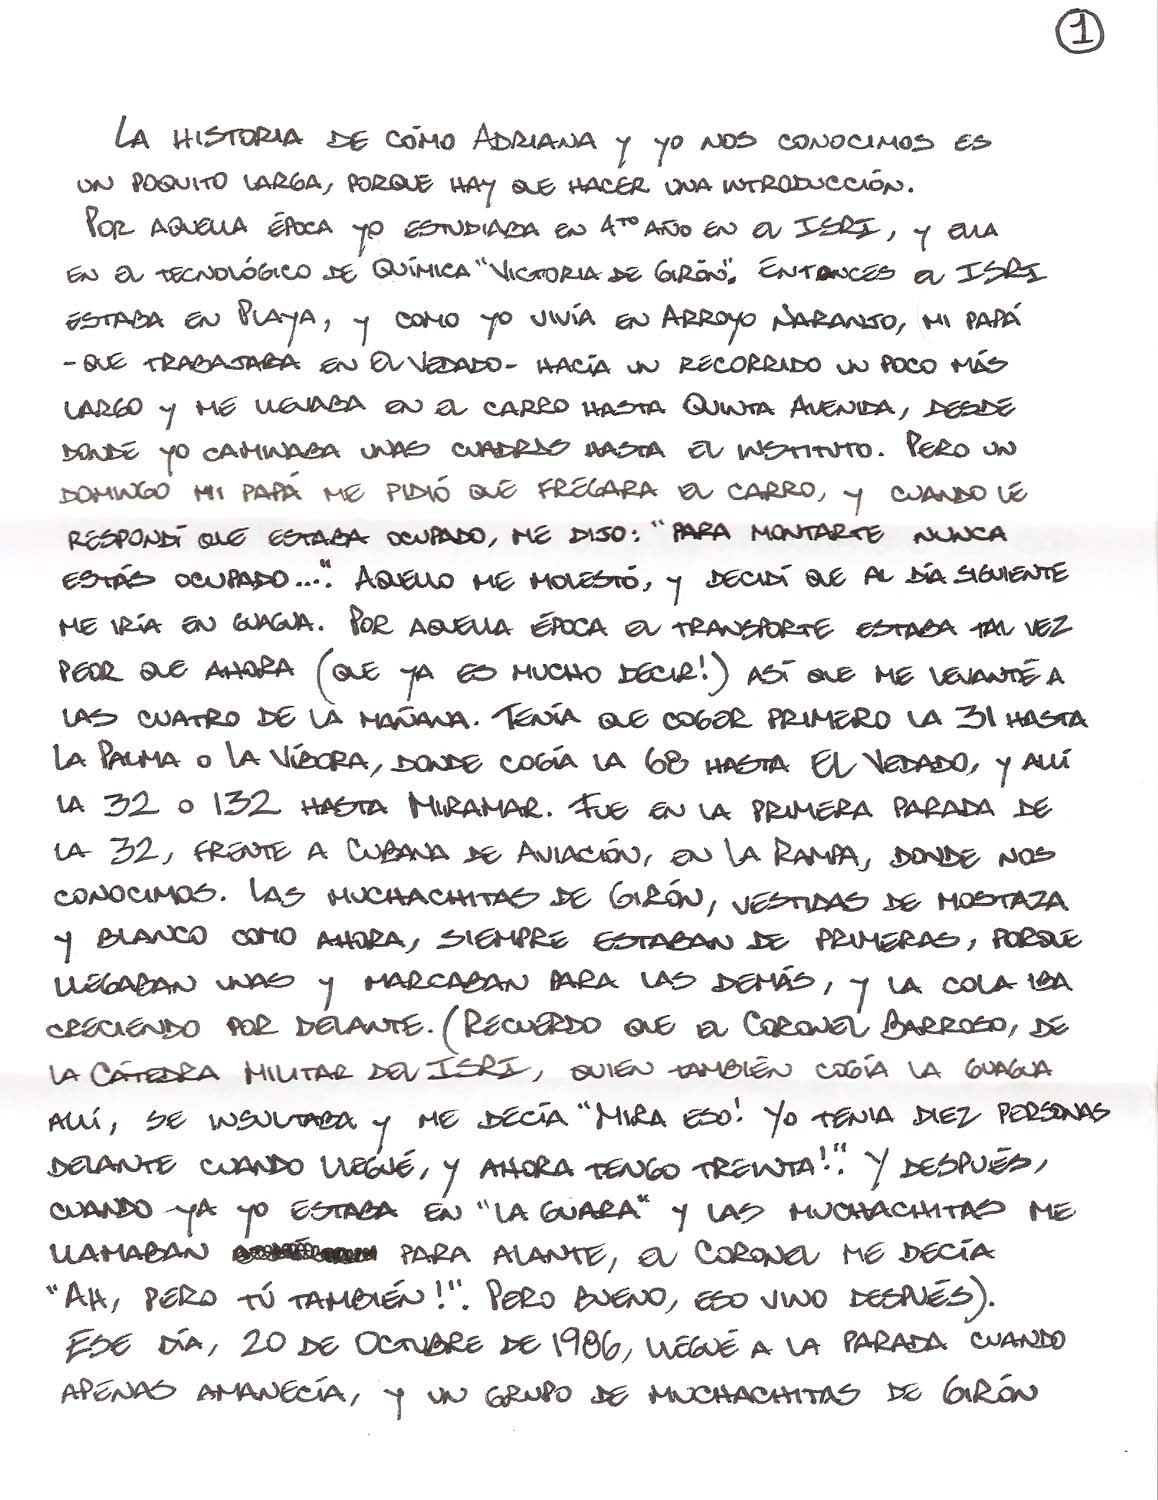 1
La historia de cómo Adriana y yo nos conocimos es
un poquito larga, porque hay que hacer una introducción.
Por aquella época yo estudiaba en 4to año en el ISRI, y ella
en el tecnológico de Química "Victoria de Girón". Entonces el ISRI
estaba en Playa, y como yo vivía en Arroyo Naranjo, mi papá
-que trabajaba en El Vedado- hacía un recorrido un poco más
largo y me llevaba en el carro hasta Quinta Avenida, desde
donde yo caminaba unas cuadras hasta el instituto. Pero un
domingo mi papá me pidió que fregara el carro, y cuando le
respondí que estaba ocupado, me dijo: "Para montarte nunca
estás ocupado...". Aquello me molestó, y decidí que al día siguiente
me iría en guagua. Por aquella época el transporte estaba tal vez
peor que ahora (que ya es mucho decir!) así que me levanté a
las cuatro de la mañana. Tenía que coger primero la 31 hasta
La Palma o La Víbora, donde cogía la 68 hasta El Vedado, y allí
la 32 o 132 hasta Miramar. Fue en la primera parada de
la 32, frente a Cubana de Aviación, en La Rampa, donde nos
conocimos. Las muchachitas de Girón, vestidas de mostaza
y blanco como ahora, siempre estaban de primeras, porque
llegaban unas y marcaban para las demás, y la cola iba
creciendo por delante. (Recuerdo que el Coronel Barroso, de
la Cátedra Militar del ISRI, quien también cogía la guagua
allí, se insultaba y me decía "Mira eso! Yo tenia diez personas
delante cuando llegué, y ahora tengo treinta!". Y después,
cuando ya yo estaba en "la guara" y las muchachitas me
llamaban para alante, el Coronel me decía
"Ah, pero tú también!". Pero bueno, eso vino después).
Ese día, 20 de Octubre de 1986, llegué a la parada cuando
apenas amanecía, y un grupo de muchachitas de Girón